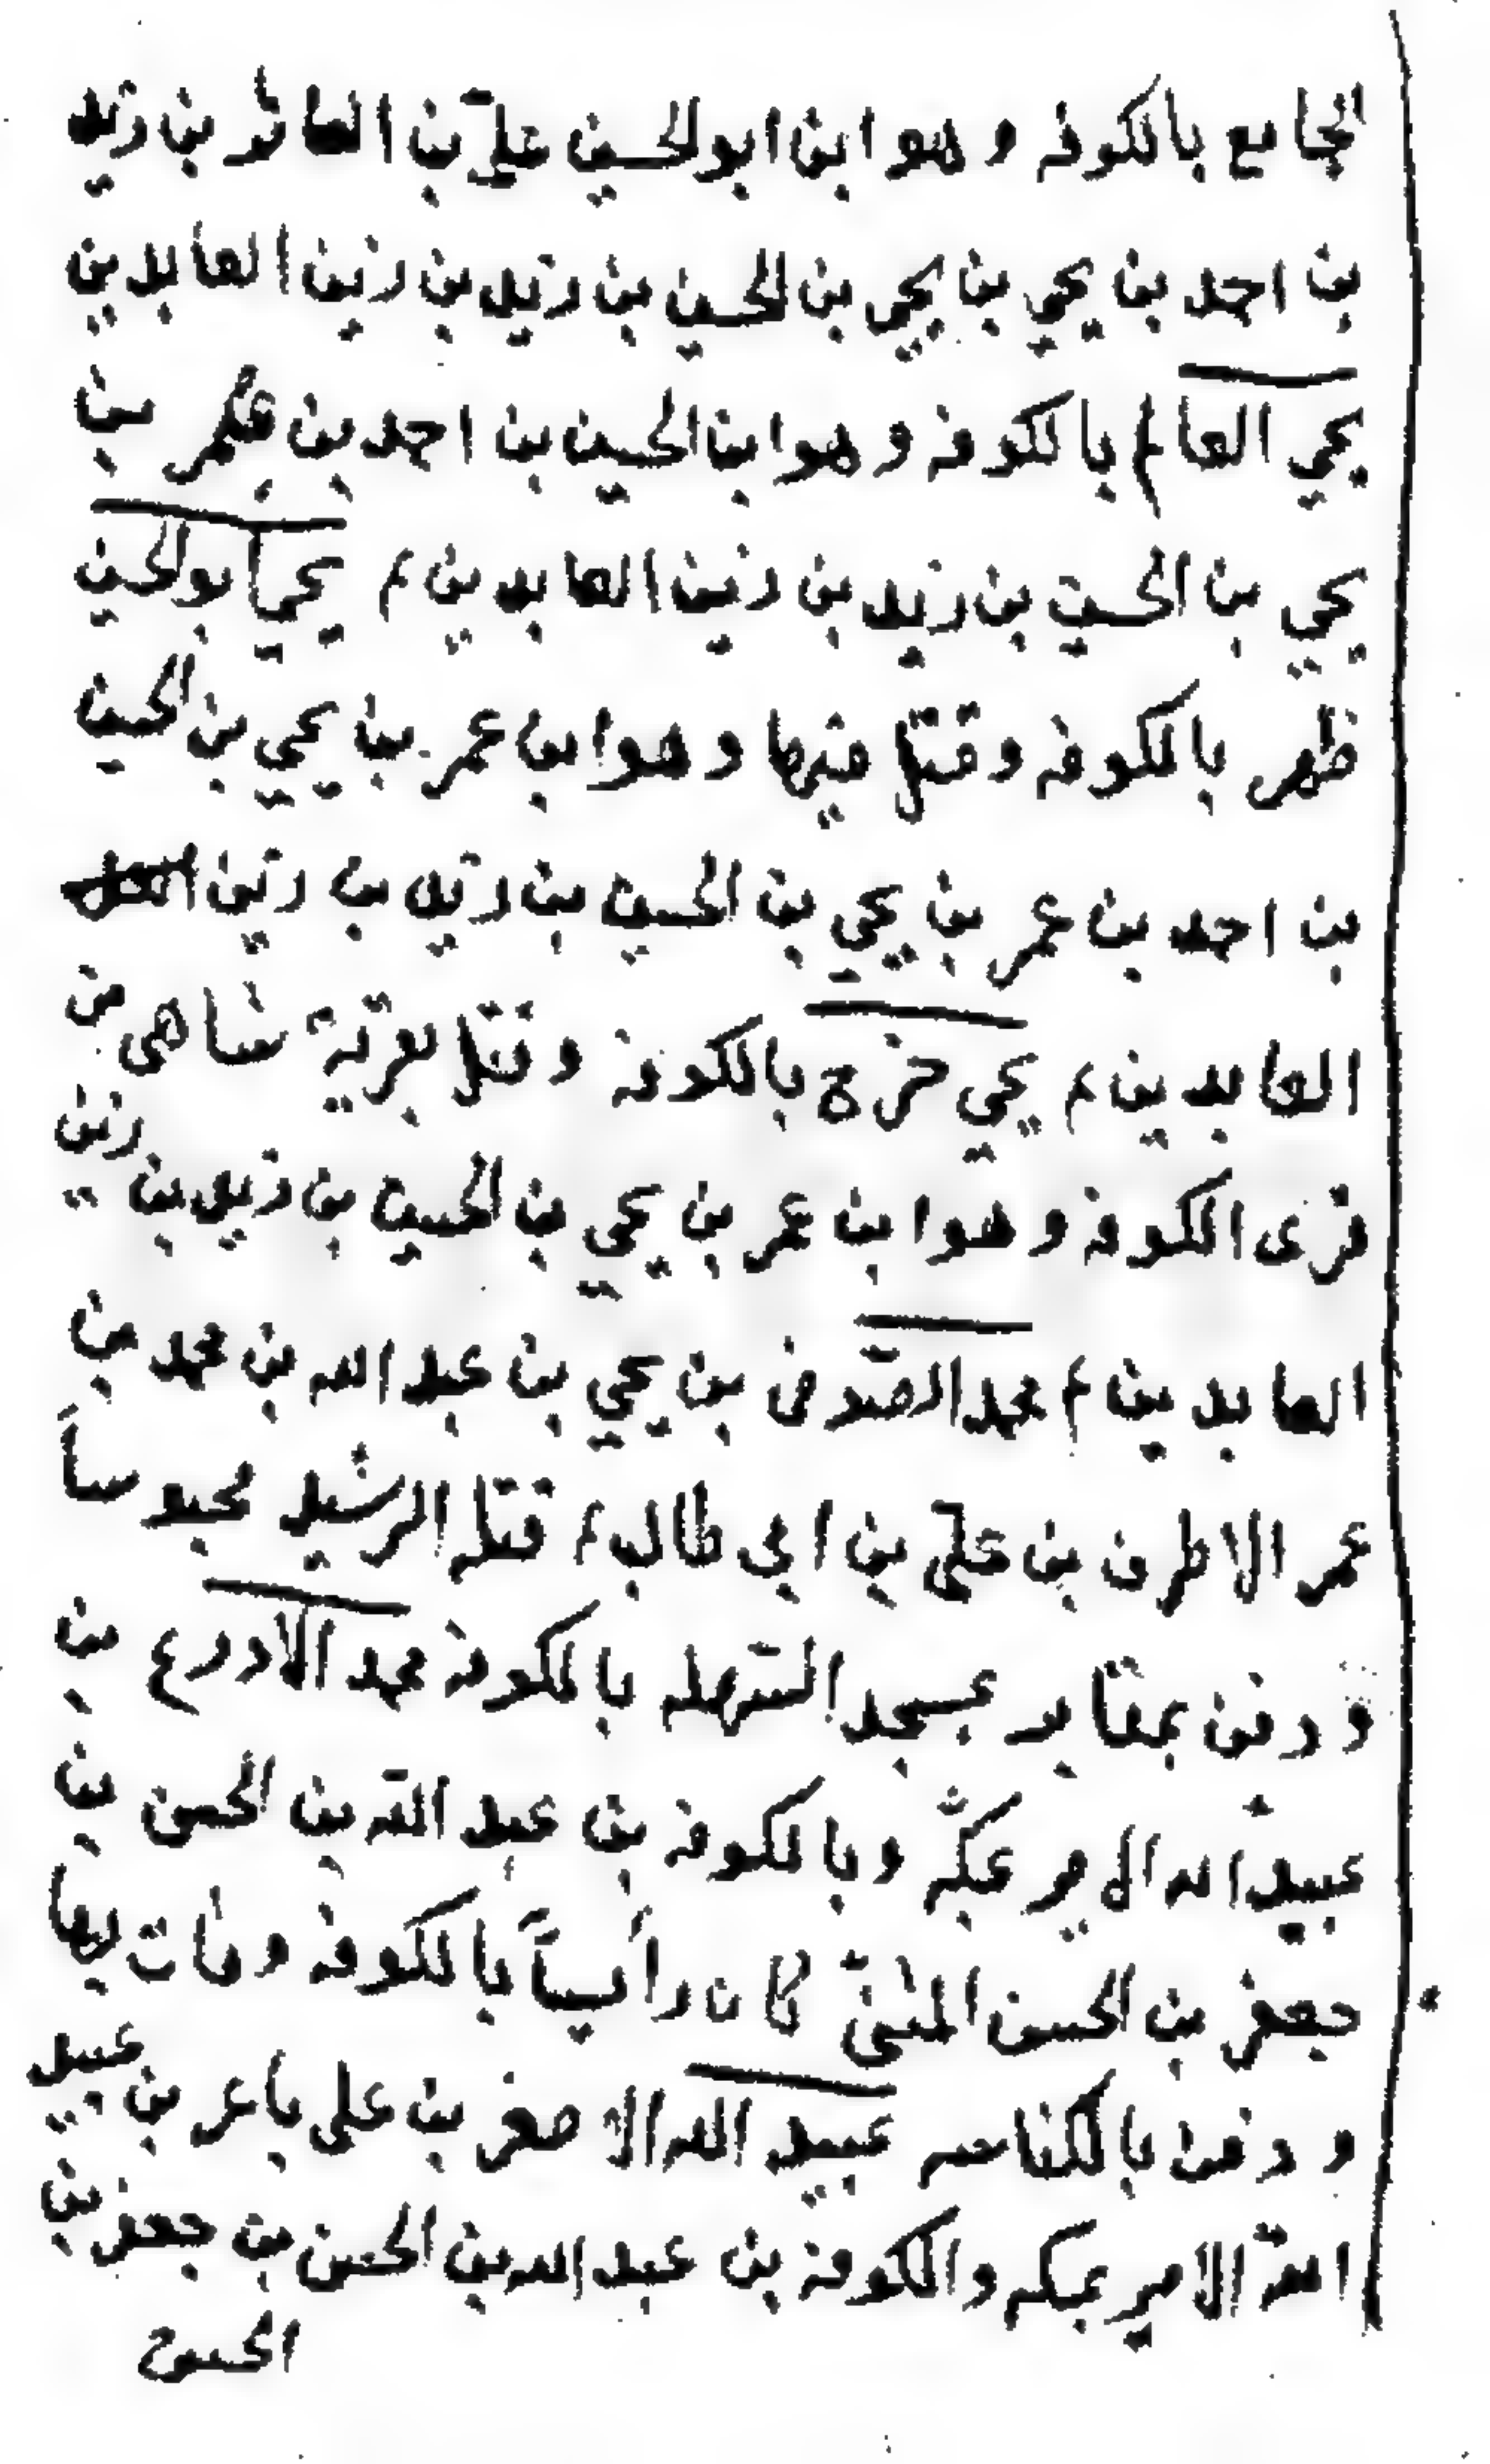 الجامع بالكوفه وهو ابن ابو الحسين عليّ بن بن زيد
بن احمد بن يحيي بن يحيي بن الحسين بن زيد بن زين العابدين
يحيي العالم بالكوفه وهو ابن الحسين بن احمد بن عمر بن
يحيي بن الحسين بن زيد بن زين العابدين م يحيي ابو الحسين
ظهر بالكوفه وقتل فيها وهو ابن عمر بن يحيي بن الحسين
بن احمد بن عمر بن يحيي بن الحسين بن زيد بن زين
العابدين م يحيي خرج بالكوفة وقتل بقرية شاهى من
قرى الكوفة وهو ابن عمر بن يحيي بن الحسين بن زيد بن زين
العابدين م محمد الصّوفى بن يحيي بن عبد الله بن محمد بن
عمر الاطرف بن عليّ بن ابي طالب م قتله الرشيد محبوساً
ودفن بمقابر بمسجد السّهله بالكوفة محمد الادرع بن
عبيد الله الامير بمكّه وبالكوفه بن عبد اللّه بن الحسن بن
جعفر بن الحسن المثنّى كان رأيساً بالكوفه ومات بها
ودفن بالكناسه عبيد الله الاصغر بن على باغر بن عبيد
اللّه الامير بمكه والكوفة بن عبد الله بن الحسن بن جعفر بن
الحسن